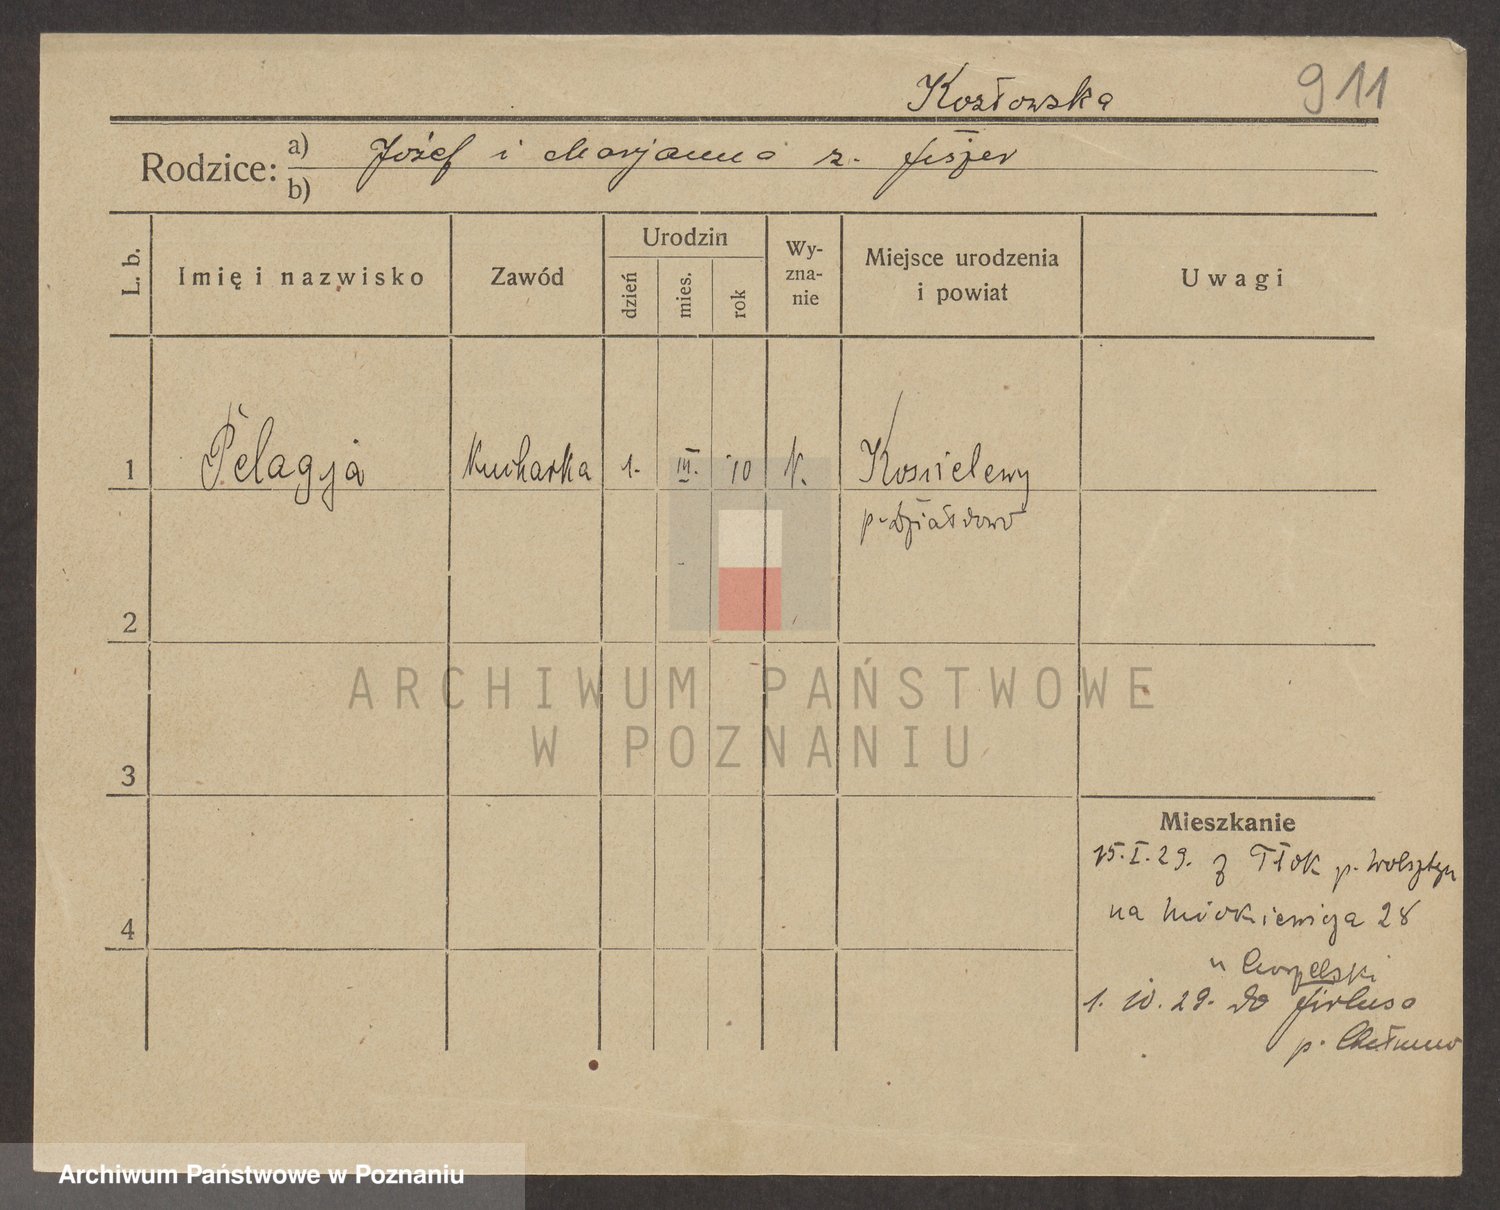 Kozłowska
911
Rodzice:
a) Józef i Marjanna z. Fiszer
b)
L. b.
Imię i nazwisko
Zawód
Urodzin
dzień
mies.
rok
Wy-
zna-
nie
Miejsce urodzenia
i powiat
Uwagi
1 Pelagja Kucharka 1. III. 10 k. Kościelewy
p. Działdowo
2
3
4
Mieszkanie
15. I. 29. z Tłok p. Wolsztyn
na Mickiewicza 28
u
1. IV. 29. do
p. Chełmno
ARCHIWUM PAŃSTWOWE
W POZNANIU
Archiwum Państwowe w Poznaniu